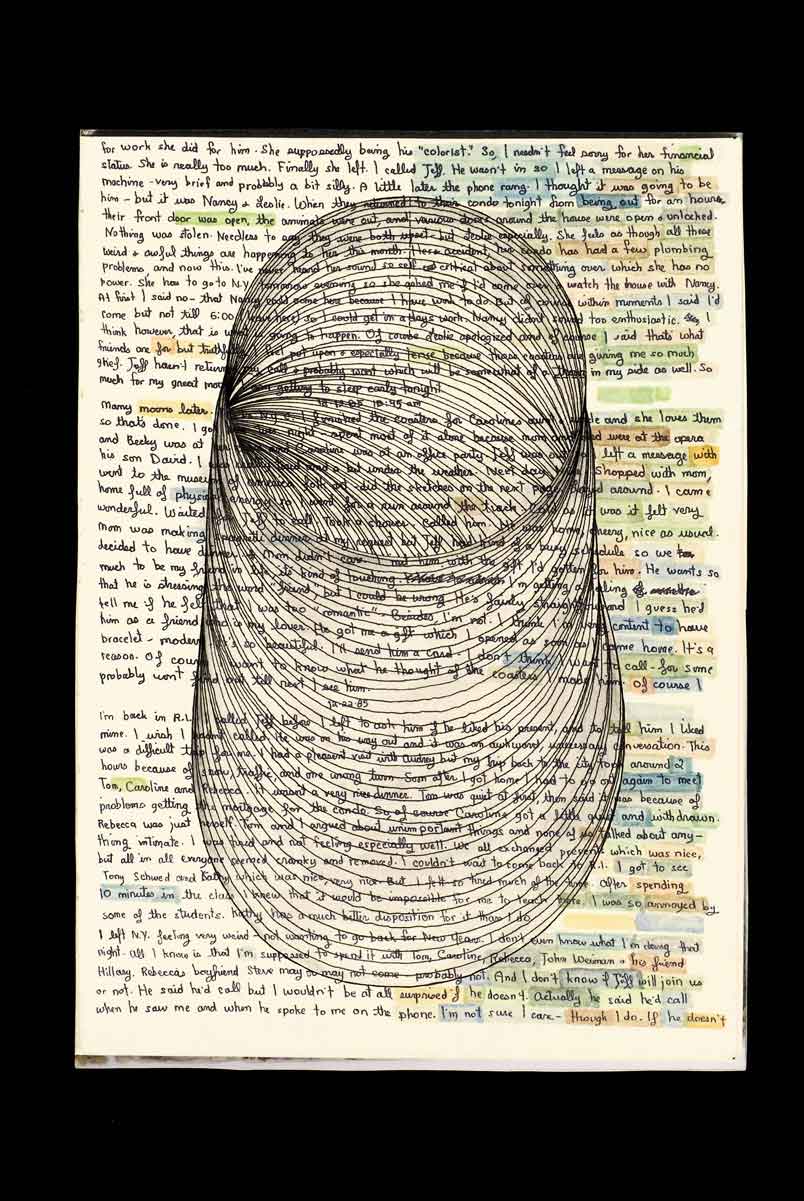 for work she did for him. She supposedly being his "colorist." So, I needn't feel sorry for her financial
status. She is really too much. Finally she left. I called Jeff. He wasn't in so I left a message on his
machine - very brief and probably a bit silly. A little later the phone rang. I thought it was going to be
him - but it was Nancy & Leslie. When they returned to their condo tonight from being out for an hour,
their front door was open, the animals were out and various doors around the house were open & unlocked.
Nothing was stolen. Needless to say they were both upset but Leslie especially. She feels as though all these
weird & awful things are happening to her this month. Her accident, her condo has had a few plumbing
problems, and now this. I've never heard her sound so self critical about something over which she has no
power. She has to go to N.Y. tomorrow evening so she asked me if I'd come over watch the house with Nancy.
At first I said no - that Nancy could come here because I have work to do. But of course within moments I said I'd
come but not till 6:00 so I could get in a days work. Nancy didn't sound too enthusiastic. I
think however, that is what going to happen. Of course Leslie apologized and of course I said thats what
friends are for but truthfully I feel put upon & especially tense because these coasters are giving me so much
grief. Jeff hasn't returned my call & probably wont which will be somewhat of a thorn in my side as well. So
much for my great mood getting to sleep early tonight.
10:45 am
Many moons later. N.Y.C. I finished the coasters for Carolines aunt and she loves them
so thats done. last night - spent most of it alone because mom and dad were at the opera
and Becky was at and Caroline was at an office party. Jeff was out I left a message with
his son David. I was and a bit under the weather. Next day Shopped with mom,
went to the museum of American Folk Art the sketches on the next page around. I came
home full of physical energy so I went for a run around the track. Cold as was it felt very
wonderful. Waited for Jeff to call. Took a shower. Called him. He was home, cheery, nice as usual.
Mom was making spaghetti dinner at my request but Jeff had kind of a busy schedule so we
decided to have dinner & Mom didn't care. met him with the gift I'd gotten for him. He wants so
much to be my friend in life. Its kind of touching. I'm getting a feeling
that he is stressing the word "friend" but I could be wrong. He's fairly straight forward and I guess he'd
tell me if he felt that was too "romantic". Besides I'm not. I think I'm very content to have
him as a friend who is my lover. He got me a gift which I opened as soon as I came home. It's a
bracelet - modern It's so beautiful. I'll send him a card. I don't think I want to call - for some
reason. Of course I want to know what he thought of the coasters I made him. Of course I
probably won't find out till next I see him.
12-22-85
I'm back in R.I. I called Jeff before I left to ask him if he liked his present, and to tell him I liked
mine. I wish I hadn't called. He was on his way out and it was an awkward, unnecessary conversation. This
was a difficult trip for me. I had a pleasant visit with Audrey but my trip back to the city took around 2
hours because of snow, traffic, and one wrong turn. Soon after I got home I had to go out again to meet
Tom, Caroline and Rebecca. It wasn't a very nice dinner. Tom was quiet at first, then said it was because of
problems getting the mortgage for the condo. So of course Caroline got a little quiet and withdrawn.
Rebecca was just herself. Tom and I argued about unimportant things and none of us talked about any-
thing intimate. I was tired and not feeling especially well. We all exchanged presents which was nice,
but all in all everyone seemed cranky and removed. I couldn't wait to come back to R.I. I got to see
Tony Schwed and Kathy which was nice, very nice. But I felt so tired much of the time. After spending
10 minutes in the class I knew that it would be impossible for me to teach there. I was so annoyed by
some of the students. Kathy has a much better disposition for it than I do.
I left N.Y. feeling very weird - not wanting to go back for New Years. I don't even know what I'm doing that
night. All I know is that I'm supposed to spend it with Tom, Caroline, Rebecca, John Weiman & his friend
Hillary. Rebecca's boyfriend Steve may or may not come - probably not. And I don't know if Jeff will join us
or not. He said he'd call but I wouldn't be at all surprised if he doesn't. Actually he said he'd call
when he saw me and when he spoke to me on the phone. I'm not sure I care - though I do. If he doesn't